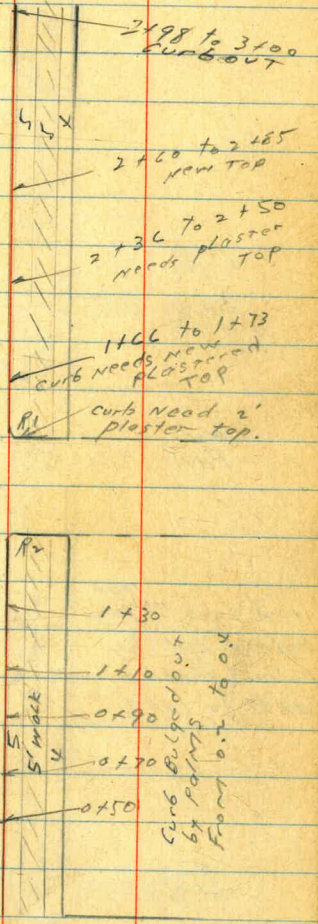 2+98 to 3+00
curb out
5 5 4
2+60 to 2+85
New Top
2+36 to 2+50
Needs plaster
TOP
1+66 to 1+73
curb Needs New
plastered
TOP
R1
curb Need 2'
plaster top.
R2
1+30
1+10
0+90
0+70
0+50
5
5' walk
4
Curb Bulged out
by palms
From 0.2 to 0.4